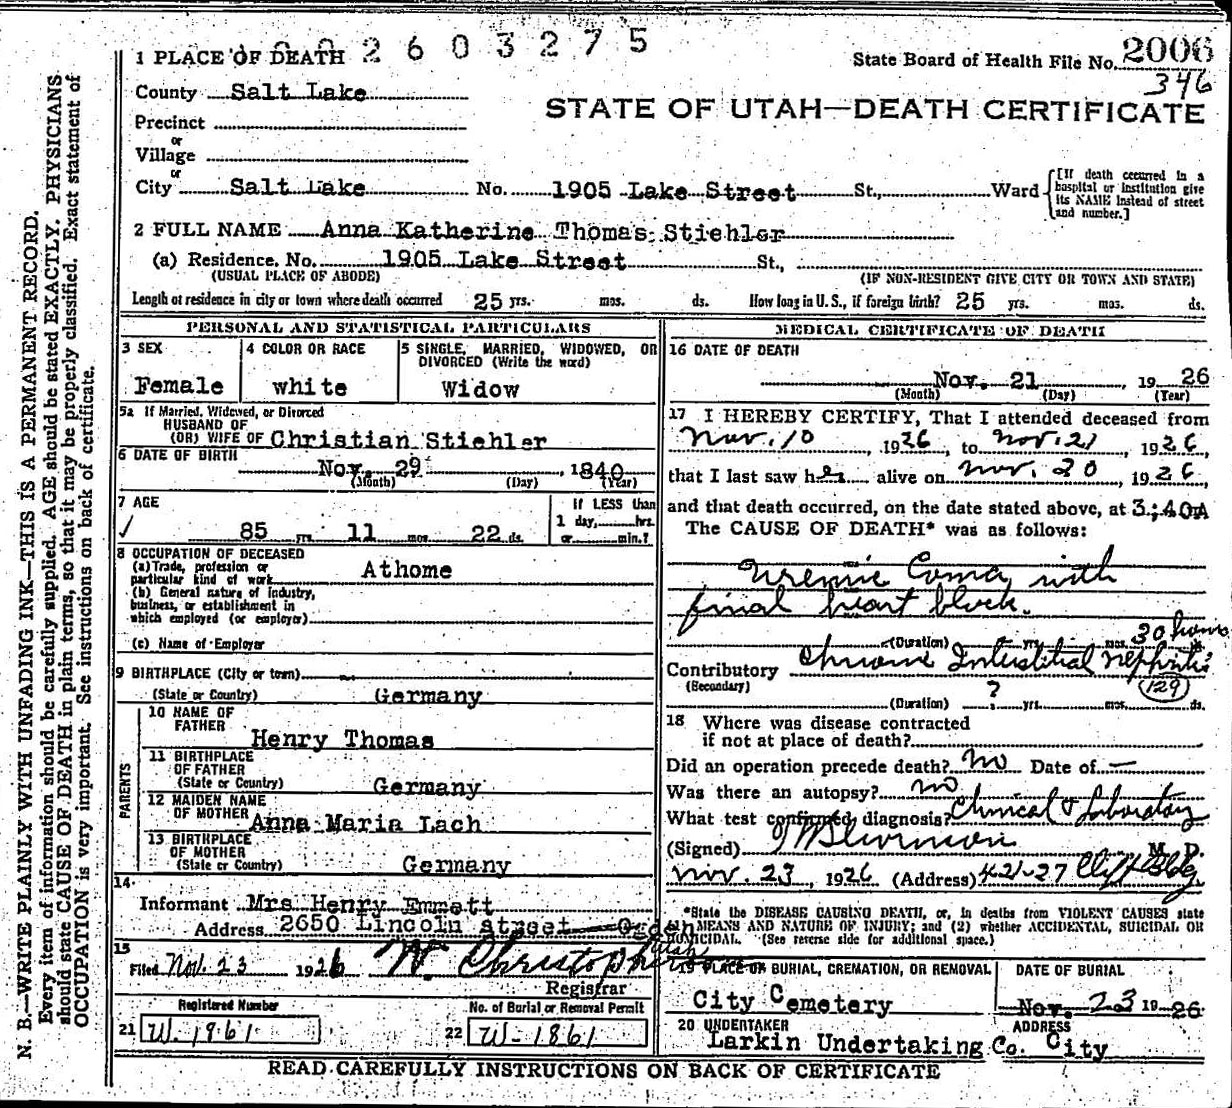 2603275
1 PLACE OF DEATH
State Board of Health File No. 2006
346
County Salt Lake
STATE OF UTAH—DEATH CERTIFICATE
Precinct
or
Village
or
City Salt Lake No. 1905 Lake Street St., Ward [If death occurred in a hospital or institution give its NAME instead of street and number.]
2 FULL NAME Anna Katherine Thomas Stiehler
(a) Residence. No. 1905 Lake Street St.,
(USUAL PLACE OF ABODE) (IF NON-RESIDENT GIVE CITY OR TOWN AND STATE)
Length of residence in city or town where death occurred 25 yrs. mos. ds. How long in U. S., if foreign birth? 25 yrs. mos. ds.
PERSONAL AND STATISTICAL PARTICULARS
3 SEX
Female
4 COLOR OR RACE
white
5 SINGLE, MARRIED, WIDOWED, OR
DIVORCED (Write the word)
Widow
5a If Married, Widowed, or Divorced
HUSBAND OF
(OR) WIFE OF Christian Stiehler
6 DATE OF BIRTH
Nov. 29 , 1840
(Month) (Day) (Year)
7 AGE
85 yrs. 11 mos. 22 ds.
If LESS than
1 day, hrs.
or min.?
8 OCCUPATION OF DECEASED
(a) Trade, profession or
particular kind of work Athome
(b) General nature of industry,
business, or establishment in
which employed (or employer)
(c) Name of Employer
9 BIRTHPLACE (City or town)
(State or Country) Germany
PARENTS
10 NAME OF
FATHER
Henry Thomas
11 BIRTHPLACE
OF FATHER
(State or Country) Germany
12 MAIDEN NAME
OF MOTHER
Anna Maria Lach
13 BIRTHPLACE
OF MOTHER
(State or Country) Germany
14
Informant Mrs Henry Emmett
Address 2650 Lincoln street Ogden
Utah
15
Filed Nov. 23 1926 W. Christopherson
Registrar
Registered Number
21 W-1861
No. of Burial or Removal Permit
22 W-1861
MEDICAL CERTIFICATE OF DEATH
16 DATE OF DEATH
Nov. 21 , 19 26
(Month) (Day) (Year)
17 I HEREBY CERTIFY, That I attended deceased from
Nov. 10 , 1926, to Nov. 21 , 1926,
that I last saw her alive on Nov. 20 , 1926,
and that death occurred, on the date stated above, at 3:40A
The CAUSE OF DEATH* was as follows:
Uremic Coma, with
final heart block.
(Duration) yrs. mos. 30 hours ds.
Contributory Chronic Interstitial Nephritis
(Secondary) (129)
(Duration) ? yrs. mos. ds.
18 Where was disease contracted
if not at place of death?
Did an operation precede death? No Date of —
Was there an autopsy? no
What test confirmed diagnosis? Clinical & Laboratory
(Signed) M. D.
Nov. 23 , 1926 (Address) 421-27 Clift Bldg.
*State the DISEASE CAUSING DEATH, or, in deaths from VIOLENT CAUSES state
(1) MEANS AND NATURE OF INJURY; and (2) whether ACCIDENTAL, SUICIDAL OR
HOMICIDAL. (See reverse side for additional space.)
19 PLACE OF BURIAL, CREMATION, OR REMOVAL
City Cemetery
DATE OF BURIAL
Nov. 23 19 26
20 UNDERTAKER
Larkin Undertaking Co.
ADDRESS
City
READ CAREFULLY INSTRUCTIONS ON BACK OF CERTIFICATE
N. B.—WRITE PLAINLY WITH UNFADING INK—THIS IS A PERMANENT RECORD.
Every item of information should be carefully supplied. AGE should be stated EXACTLY. PHYSICIANS
should state CAUSE OF DEATH in plain terms, so that it may be properly classified. Exact statement of
OCCUPATION is very important. See instructions on back of certificate.